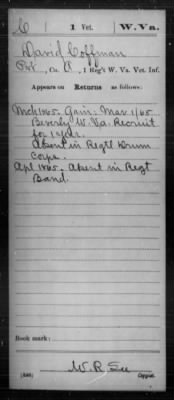 C | 1 Vet. | W. Va.
David Coffman
Pvt, Co. O, 1 Reg't W. Va. Vet. Inf.
Appears on Returns as follows:
Mch 1865. Gain: Mar 1/65
Beverly W. Va. Recruit
for 1 year.
Absent in Regtl Drum
Corps.
Apl 1865. Absent in Regt
Band.
Book mark:
(546)
W. R. See
Copyist.